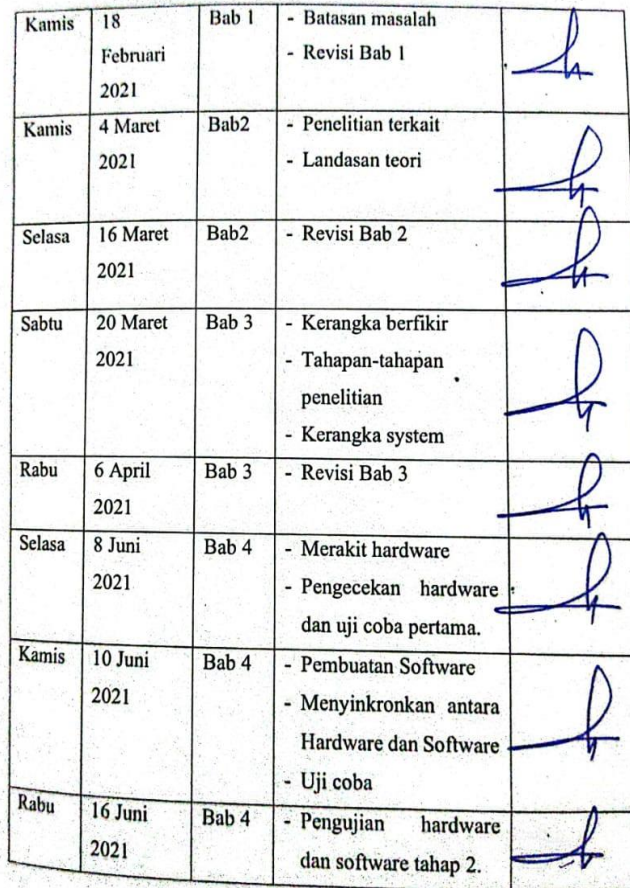 Kamis 18 Bab 1 - Batasan masalah
Februari - Revisi Bab 1
2021
Kamis 4 Maret Bab2 - Penelitian terkait
2021 - Landasan teori
Selasa 16 Maret Bab2 - Revisi Bab 2
2021
Sabtu 20 Maret Bab 3 - Kerangka berfikir
2021 - Tahapan-tahapan
penelitian
- Kerangka system
Rabu 6 April Bab 3 - Revisi Bab 3
2021
Selasa 8 Juni Bab 4 - Merakit hardware
2021 - Pengecekan hardware
dan uji coba pertama.
Kamis 10 Juni Bab 4 - Pembuatan Software
2021 - Menyinkronkan antara
Hardware dan Software
- Uji coba
Rabu 16 Juni Bab 4 - Pengujian hardware
2021 dan software tahap 2.